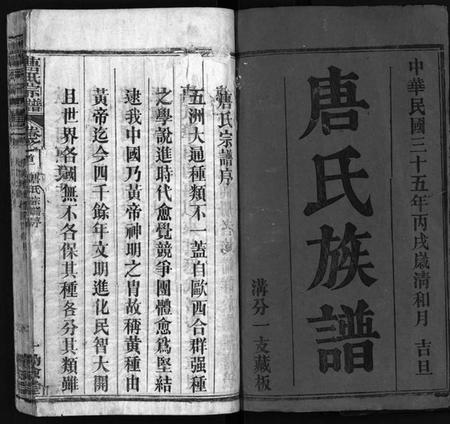 中華民國三十五年丙戌歲清和月 吉旦
唐氏族譜
溝分一支藏板
唐氏宗譜序
五洲大通種類不一蓋自歐西合群强種
之學說進時代愈覺競爭團體愈爲堅結
逑我中國乃黃帝神明之胄故稱黃種由
黃帝迄今四千餘年文明進化民智大開
且世界各國無不各保其種各分其類雖
唐氏宗譜 卷之首 唐氏宗譜序 一